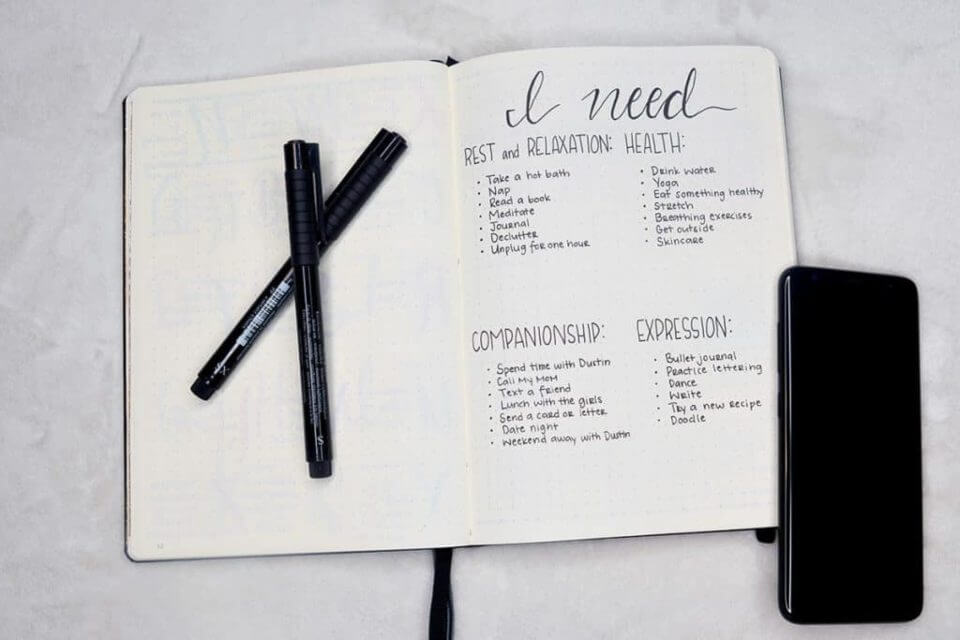 I need
REST and RELAXATION:
• Take a hot bath
• Nap
• Read a book
• Meditate
• Journal
• Declutter
• Unplug for one hour
HEALTH:
• Drink water
• Yoga
• Eat something healthy
• Stretch
• Breathing exercises
• Get outside
• Skincare
COMPANIONSHIP:
• Spend time with Dustin
• Call My Mom
• Text a friend
• Lunch with the girls
• Send a card or letter
• Date night
• Weekend away with Dustin
EXPRESSION:
• Bullet journal
• Practice lettering
• Dance
• Write
• Try a new recipe
• Doodle
S